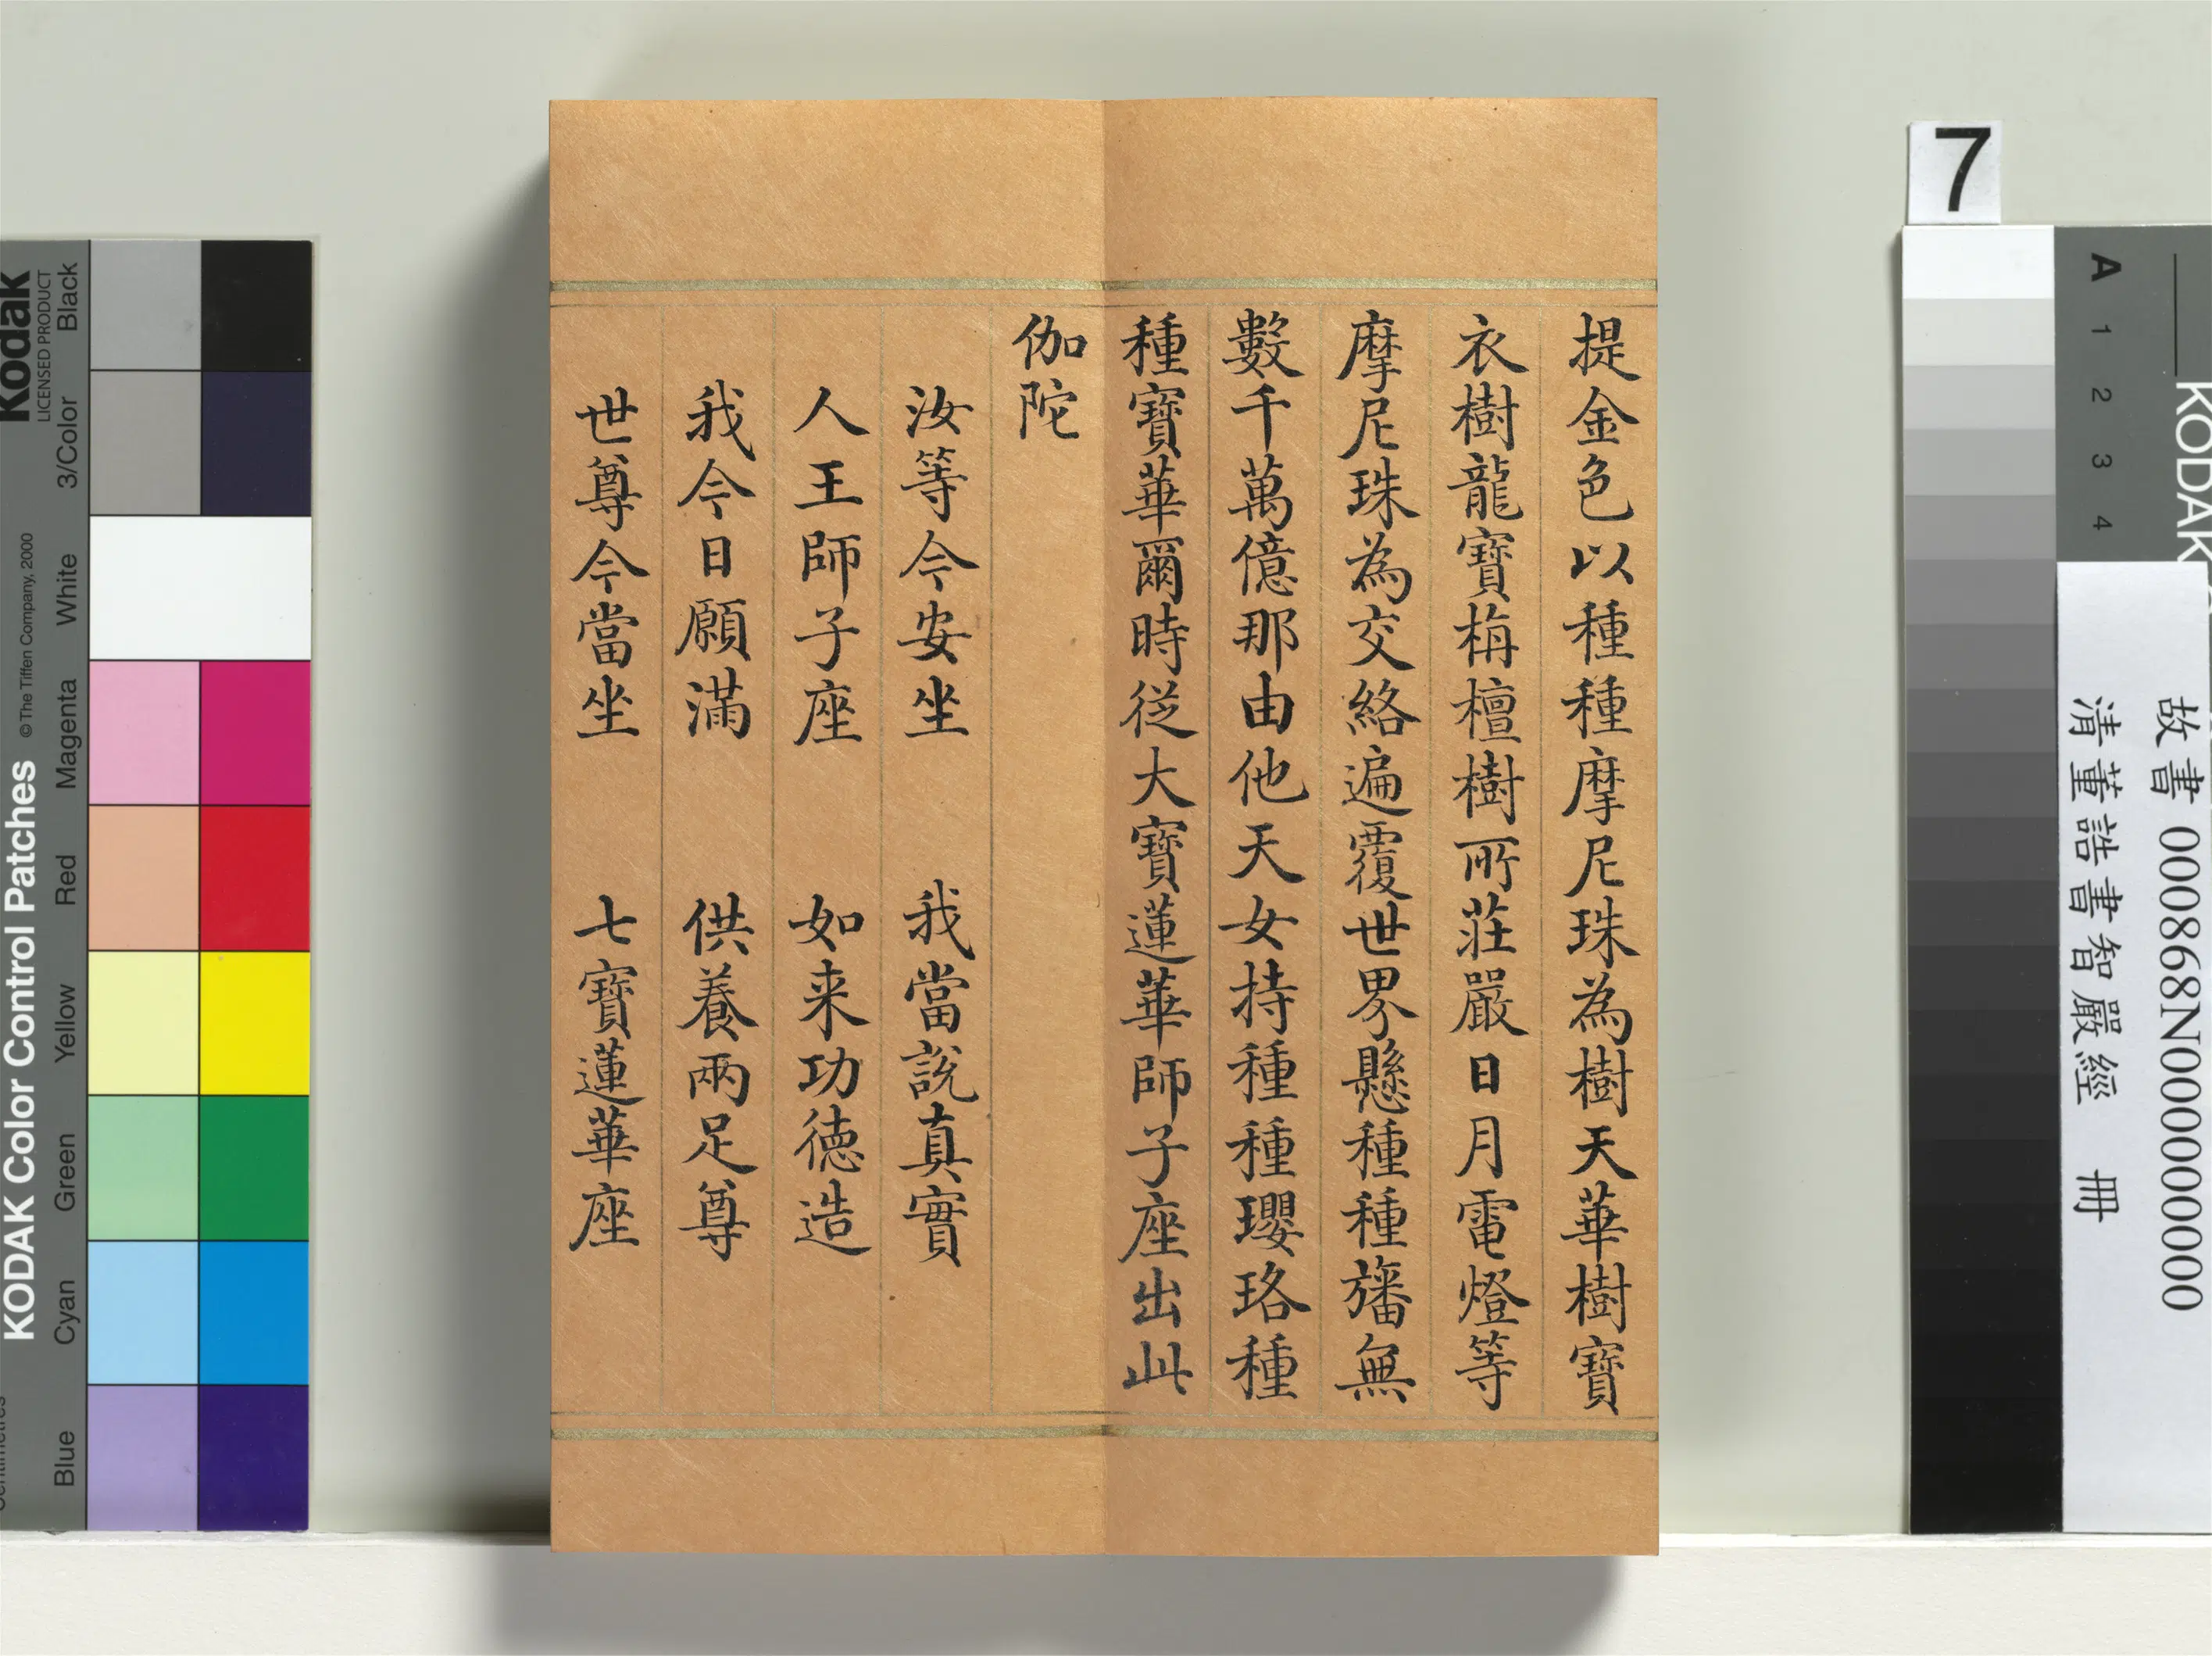 提金色以種種摩尼珠為樹天華樹寶
衣樹龍寶栴檀樹所莊嚴日月電燈等
摩尼珠為交絡遍覆世界懸種種旛無
數千萬億那由他天女持種種瓔珞種
種寶華爾時從大寶蓮華師子座出此
伽陀
汝等今安坐 我當說真實
人王師子座 如来功德造
我今日願滿 供養兩足尊
世尊今當坐 七寶蓮華座
7
A 1 2 3 4
KODAK
故書 000868N000000000
清董誥書智嚴經 冊
Kodak
LICENSED PRODUCT
KODAK Color Control Patches
©The Tiffen Company, 2000
Black
3/Color
White
Magenta
Red
Yellow
Green
Cyan
Blue